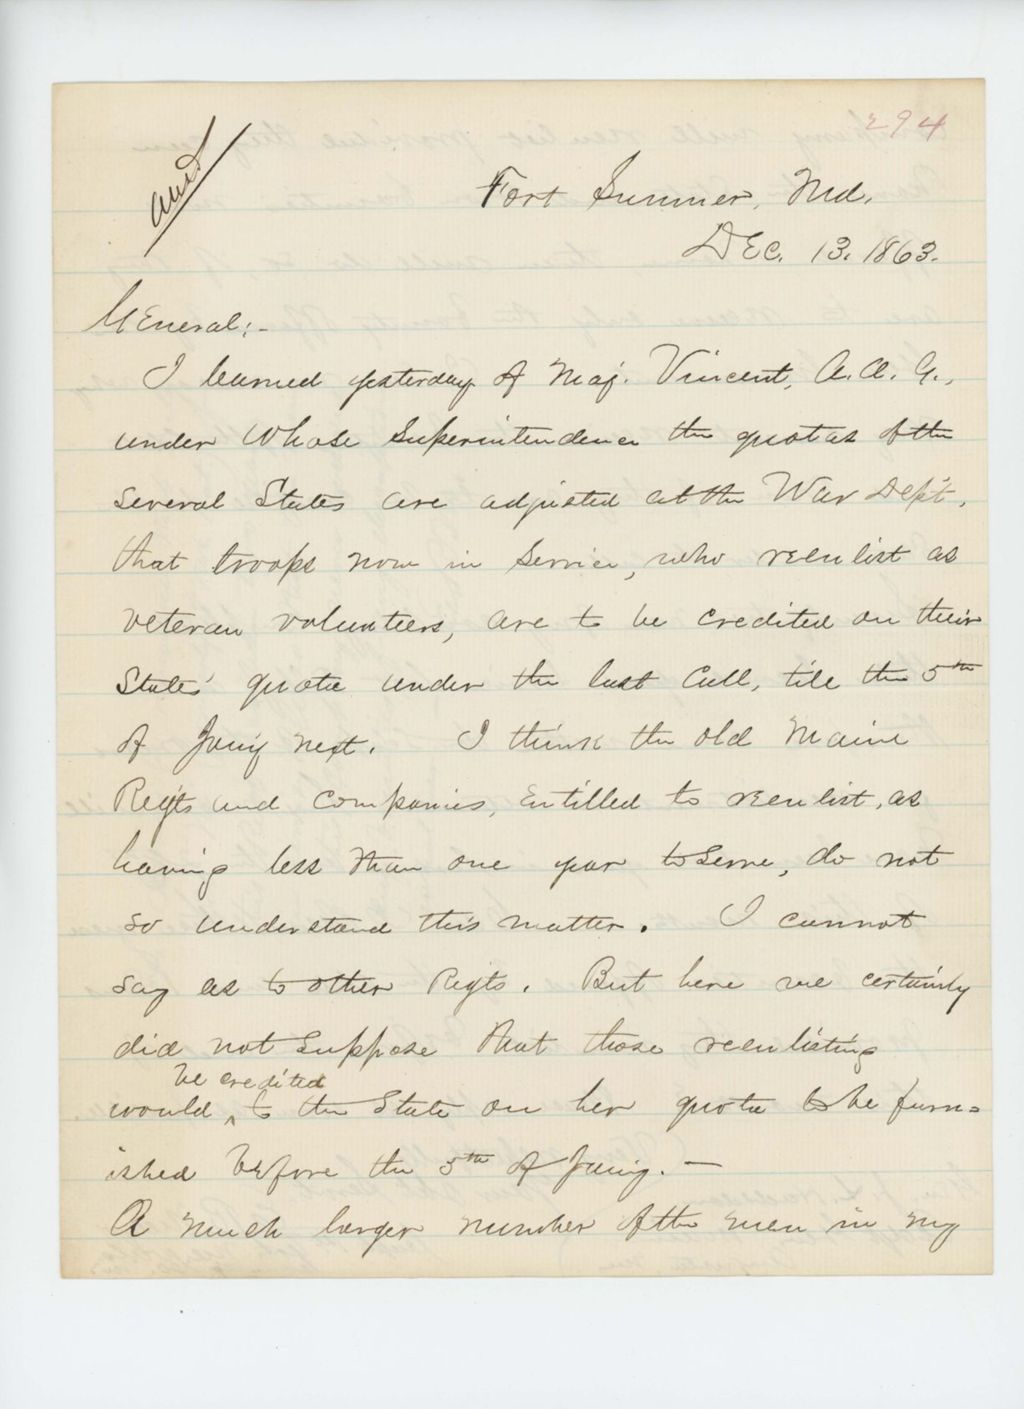 294
Fort Sumner, Md.
Dec. 13. 1863.
General:-
I learned yesterday of Maj. Vincent, A. A. G.,
under whose Superintendence the quotas of the
several States are adjusted at the War Dep't,
that troops now in Service, who reenlist as
veteran volunteers, are to be credited on their
States' quota under the last Call, till the 5th
of Jan'y next. I think the old Maine
Reg'ts and Companies, entitled to reenlist, as
having less than one year to serve, do not
so understand this matter. I cannot
say as to other Regts. But here we certainly
did not suppose that those reenlisting
be credited
would ‸ to the State on her quota to be furn=
ished before the 5th of Jan'y. —
A much larger number of the men in my